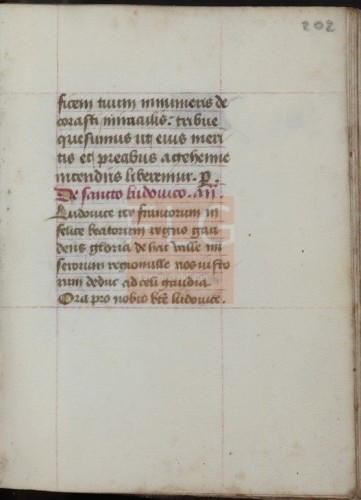 202
ficem tuum innumeris de
corasti miraculis: tribue
quesumus ut eius meri
tis et precibus a gehenne
incendiis liberemur. p.
De sancto ludovico. an
Ludovice rex francorum in
felice beatorum regno gau
dens gloria de hac valle mi
serorum regionulle nos iusto
rum deduc ad celi gaudia
Ora pro nobis bte ludovice.